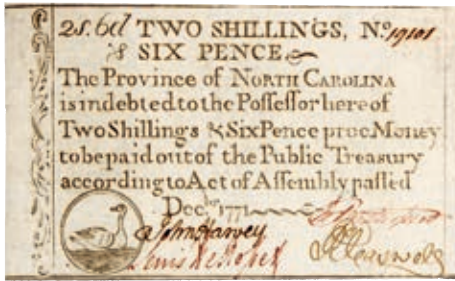 2s. 6d TWO SHILLINGS, No. 19101
& SIX PENCE
The Province of NORTH CAROLINA
is indebted to the Poſſeſſor here of
Two Shillings & Six Pence proc Money
to be paid out of the Public Treasury
according to Act of Aſſembly paſſed
Decbr. 1771
John Harvey
Lewis De Roſset